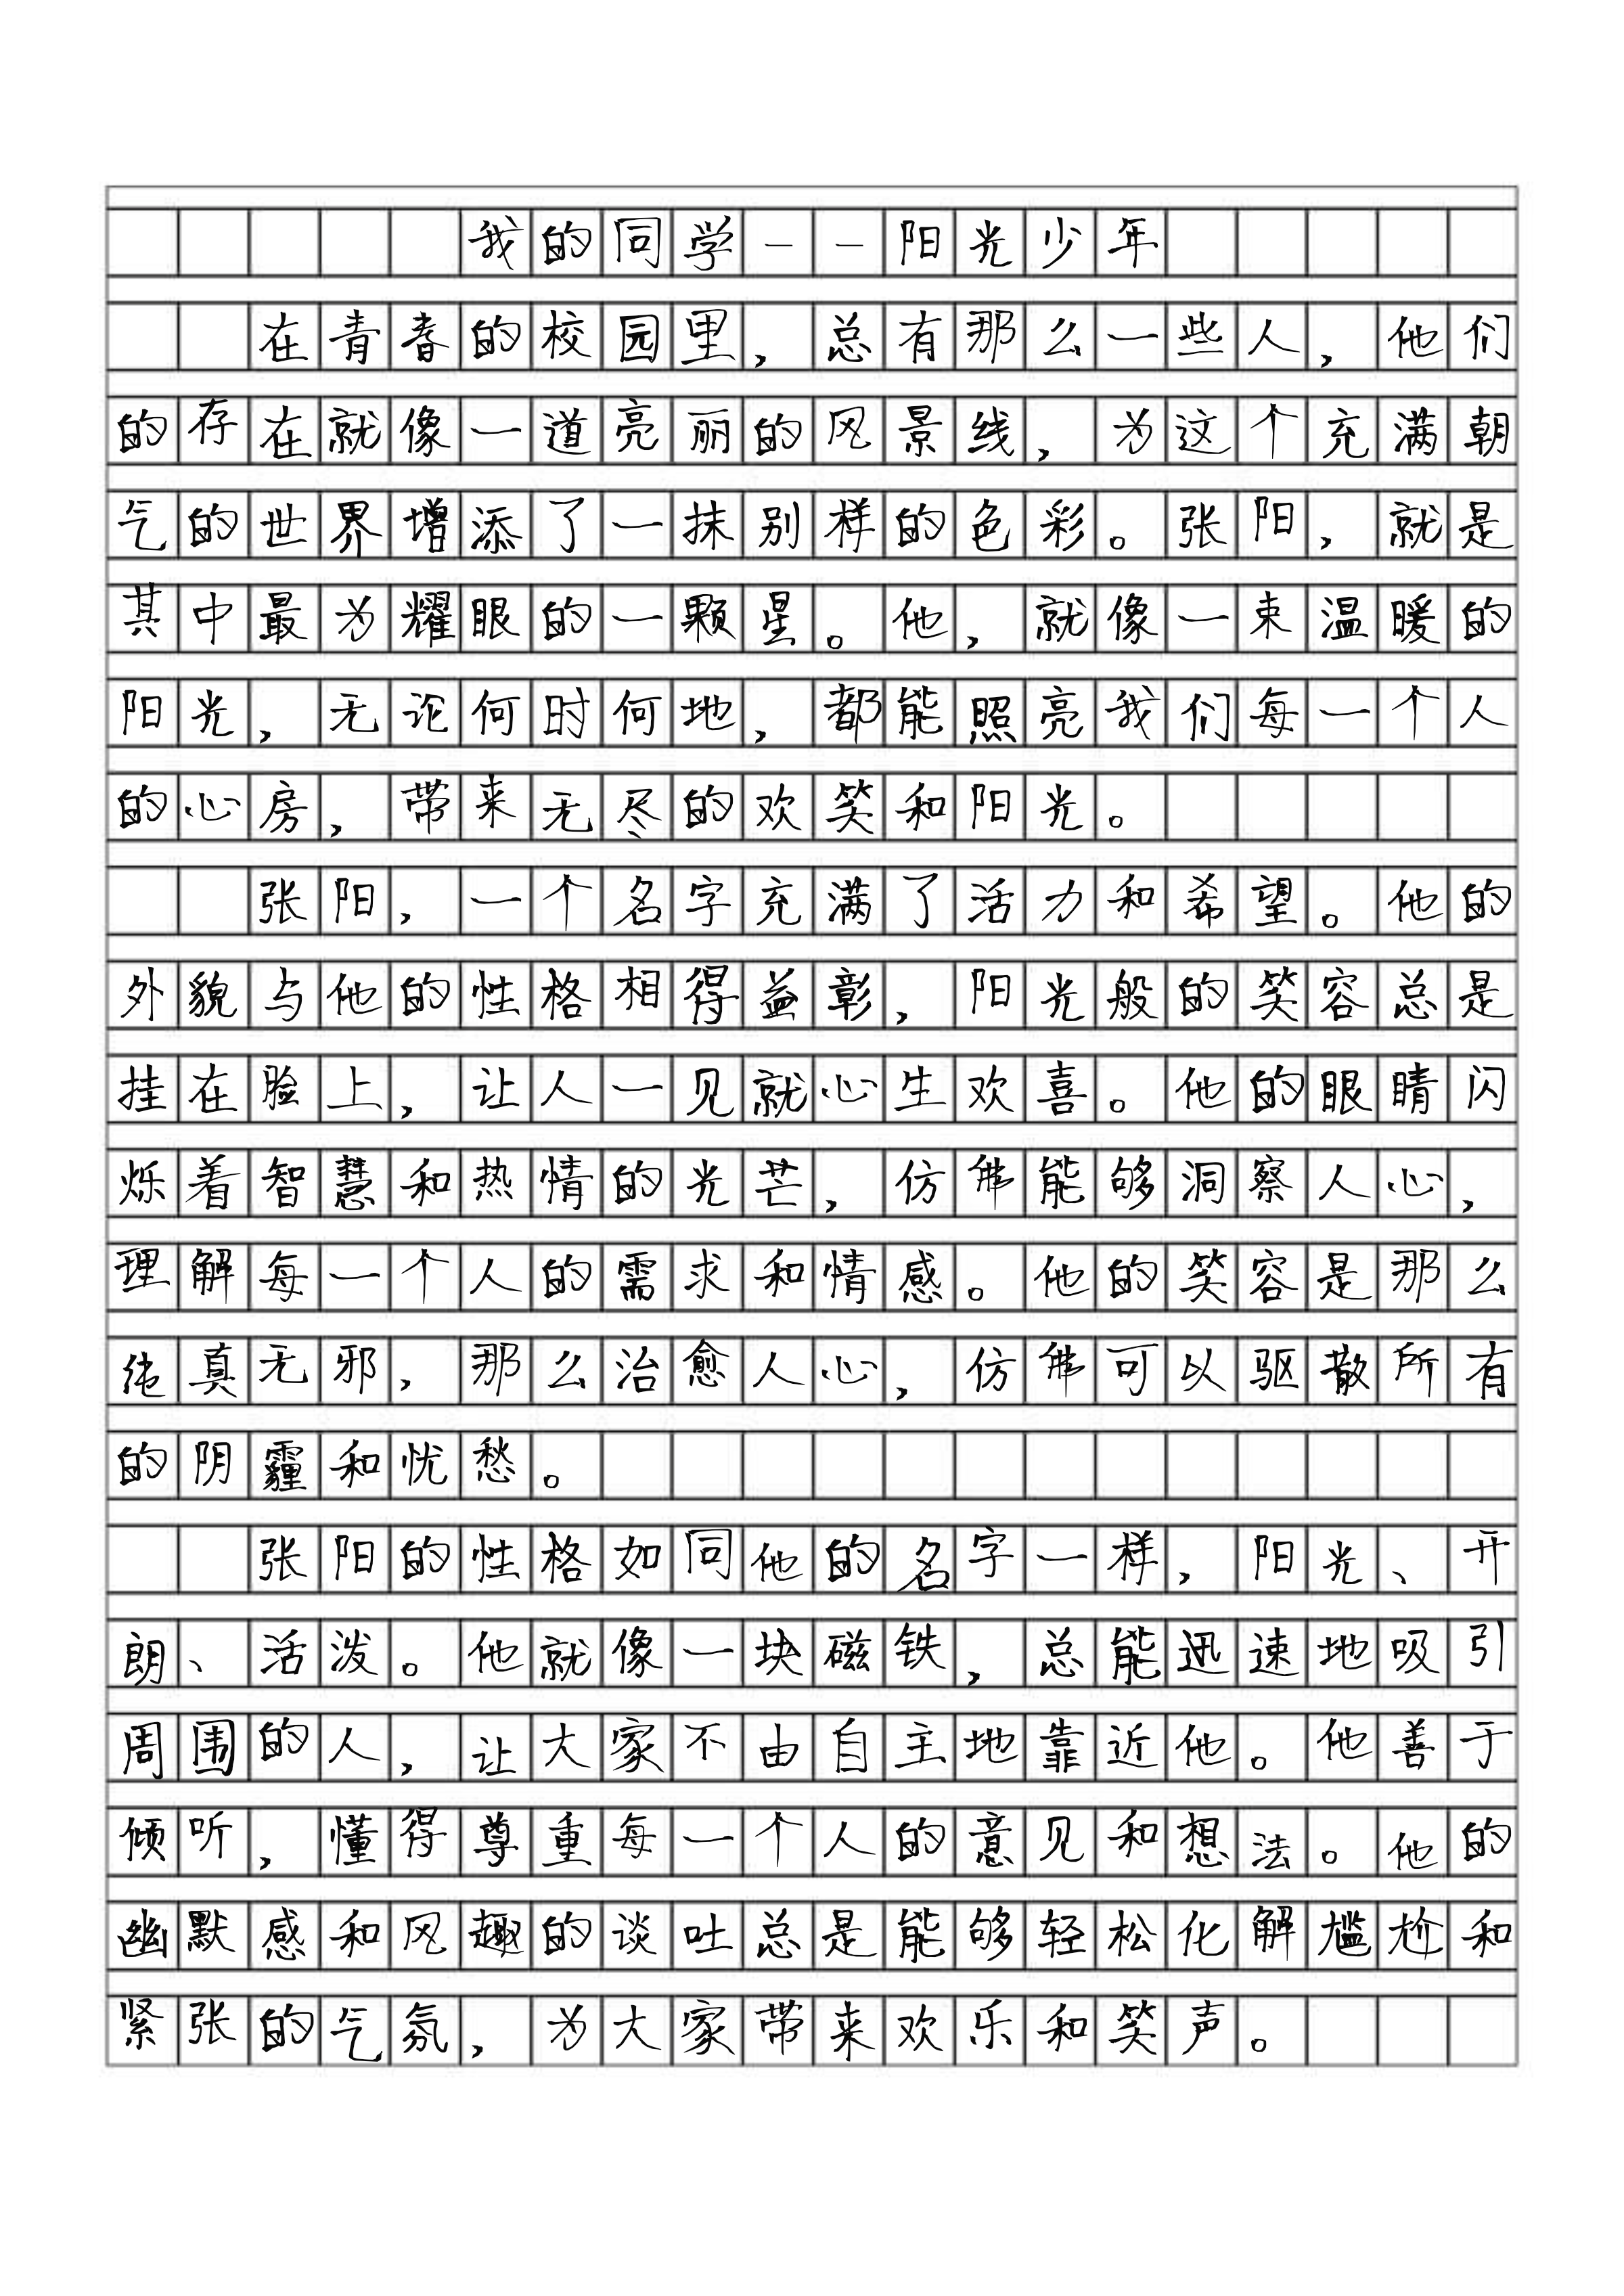 我的同学——阳光少年
在青春的校园里，总有那么一些人，他们
的存在就像一道亮丽的风景线，为这个充满朝
气的世界增添了一抹别样的色彩。张阳，就是
其中最为耀眼的一颗星。他，就像一束温暖的
阳光，无论何时何地，都能照亮我们每一个人
的心房，带来无尽的欢笑和阳光。
张阳，一个名字充满了活力和希望。他的
外貌与他的性格相得益彰，阳光般的笑容总是
挂在脸上，让人一见就心生欢喜。他的眼睛闪
烁着智慧和热情的光芒，仿佛能够洞察人心，
理解每一个人的需求和情感。他的笑容是那么
纯真无邪，那么治愈人心，仿佛可以驱散所有
的阴霾和忧愁。
张阳的性格如同他的名字一样，阳光、开
朗、活泼。他就像一块磁铁，总能迅速地吸引
周围的人，让大家不由自主地靠近他。他善于
倾听，懂得尊重每一个人的意见和想法。他的
幽默感和风趣的谈吐总是能够轻松化解尴尬和
紧张的气氛，为大家带来欢乐和笑声。